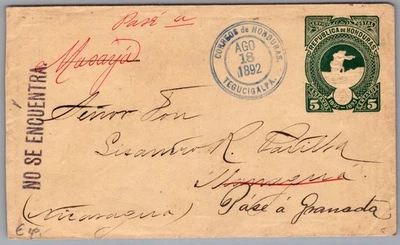 Pasé a
Masaya
NO SE ENCUENTRA.
CORREOS DE HONDURAS.
AGO
18
1892
TEGUCIGALPA.
SERVICIO POSTAL
REPUBLICA DE HONDURAS
5 5
Señor Don
Lisandro R. Padilla
Managua
(Nicaragua) Pasé á Granada